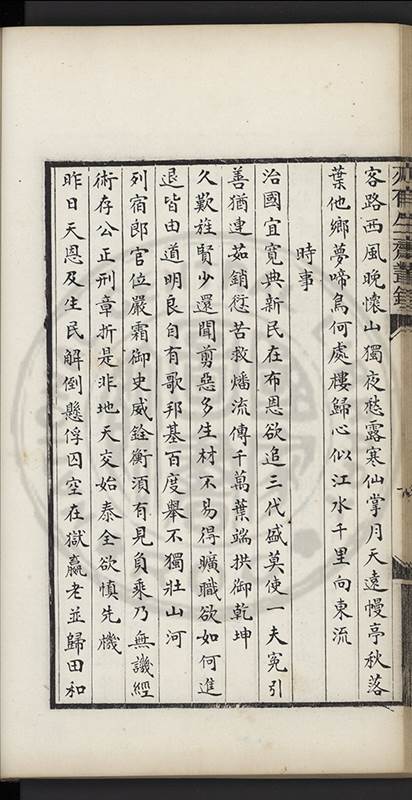 客路西風晚懷山獨夜愁露寒仙掌月天遠幔亭秋落
葉他鄉夢啼鳥何處樓歸心似江水千里向東流
時事
治國宜寬典新民在布恩欲追三代盛莫使一夫冤引
善猶連茹銷愆苦救燔流傳千萬葉端拱御乾坤
久歎旌賢少還聞剪惡多生材不易得曠職欲如何進
退皆由道明良自有歌邦基百度舉不獨壯山河
列宿郎官位嚴霜御史威銓衡須有見負乘乃無譏經
術存公正刑章折是非地天交始泰全欲慎先機
昨日天恩及生民解倒懸俘囚空在獄羸老並歸田和